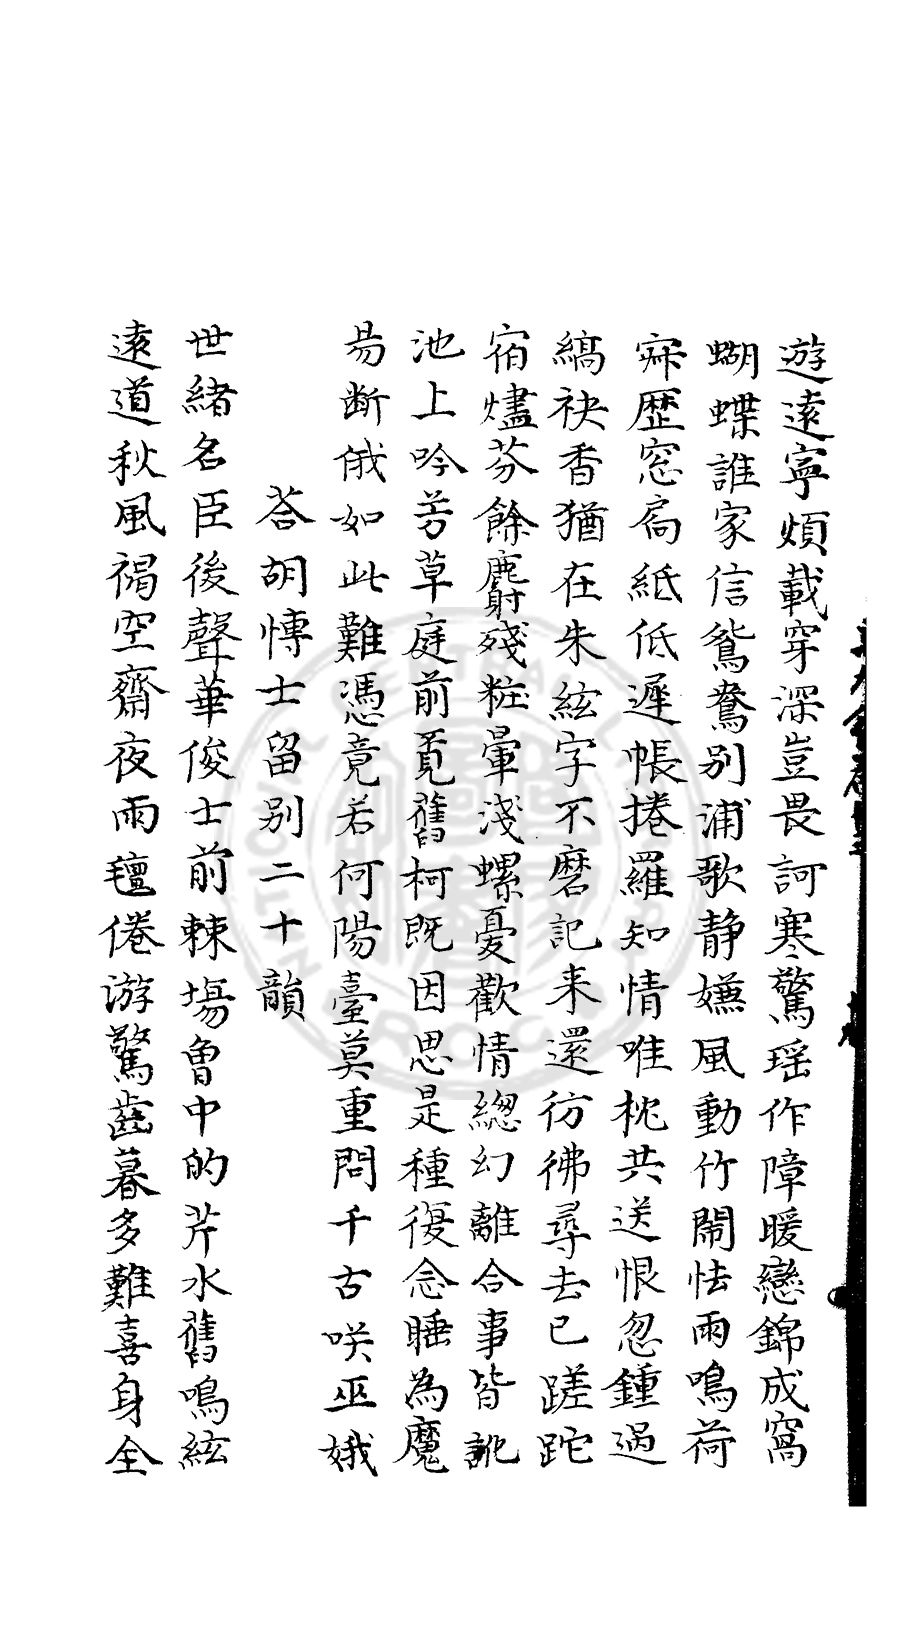 遊遠寧煩載穿深豈畏訶寒驚瑶作障暖戀錦成窩
蝴蝶誰家信鴛鴦别浦歌静嫌風動竹閙怯雨鳴荷
寂歴窓扃紙低遲帳捲羅知情唯枕共送恨忽鍾過
縞袂香猶在朱絃字不磨記来還彷彿尋去已蹉跎
宿燼芬餘麝殘粧暈淺螺憂歡情緫幻離合事皆訛
池上吟芳草庭前覓舊柯既因思是種復念睡為魔
易断俄如此難憑竟若何陽臺莫重問千古咲巫娥
荅胡慱士留别二十韻
世緒名臣後聲華俊士前棘塲魯中的芹水舊鳴絃
逺道秋風褐空齋夜雨氊倦游驚齒暮多難喜身全